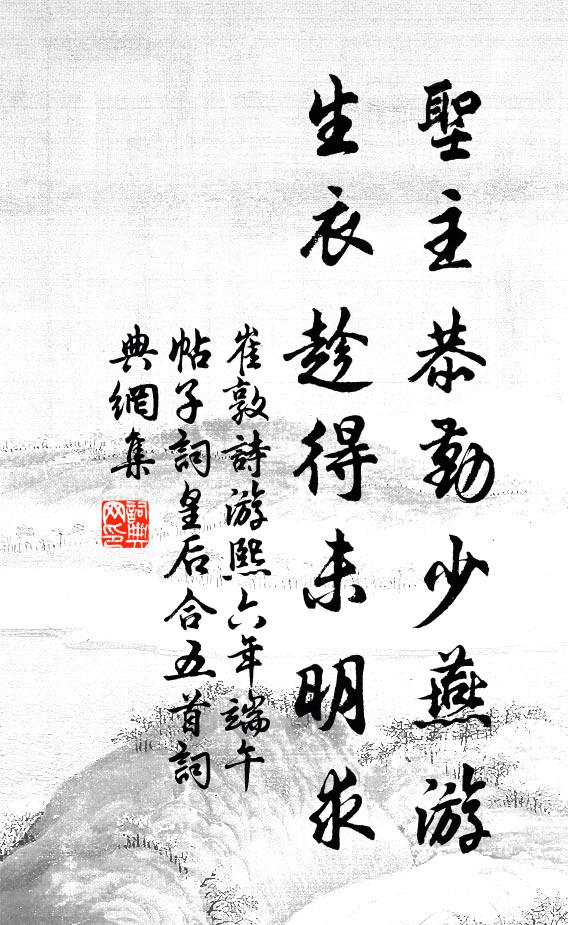 聖主恭勤少燕游
生衣趁得未明求
崔敦詩游熙六年端午
帖子詞皇后合五首詞
典網集
詞典网印